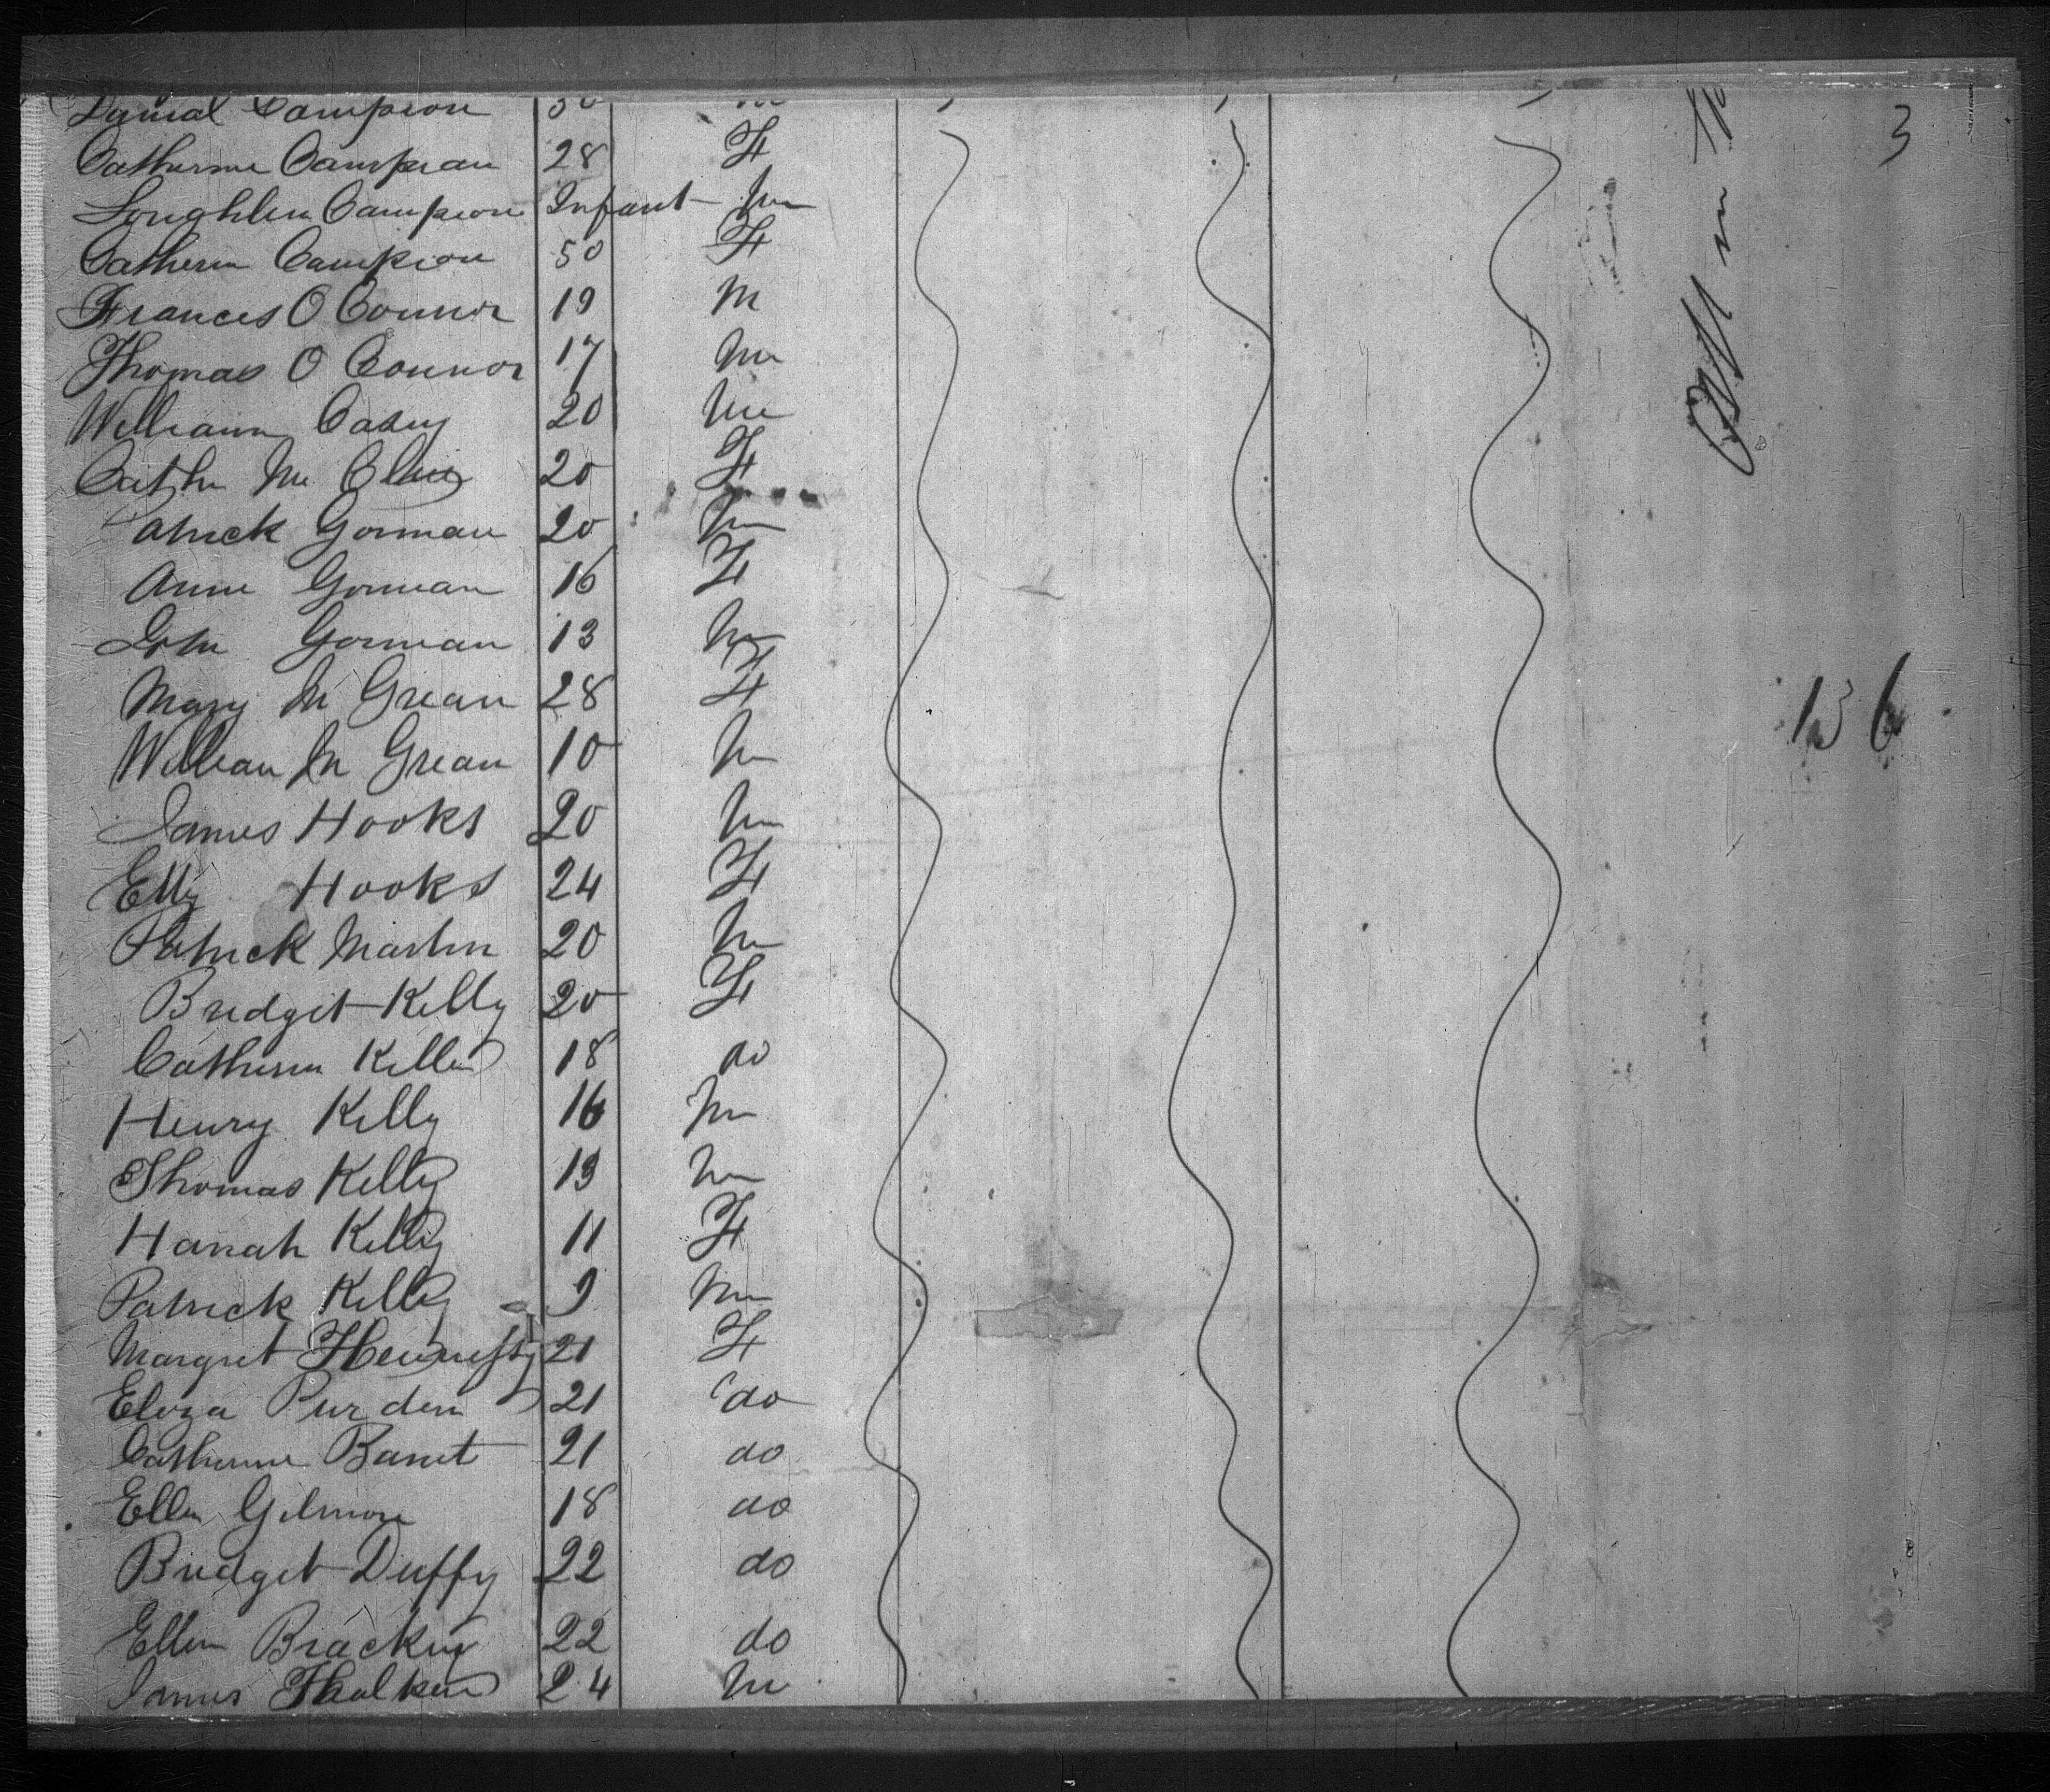 Daniel Campion 30 m 3
Catherine Campion 28 F
Loughlin Campion Infant m
Catherin Campion 50 F
Frances O Connor 19 M
Thomas O Connor 17 m
William Casey 20 m
Cathn Mc 20 F
Patrick Gorman 20 m
Anne Gorman 16 F
John Gorman 13 m
Mary Mc Grean 28 F
William Mc Grean 10 m
136
James Hooks 20 m
Elly Hooks 24 F
Patrick Martin 20 m
Bridget Kelly 20 F
Catherin Kelly 18 do
Henry Kelly 16 m
Thomas Kelly 13 m
Hanah Kelly 11 F
Patrick Kelly 9 m
Margret Hennessy 21 F
Eliza Purden 21 do
Catherine Barret 21 do
Ellen Gilmore 18 do
Bridget Duffy 22 do
Ellen Bracken 22 do
James 24 m